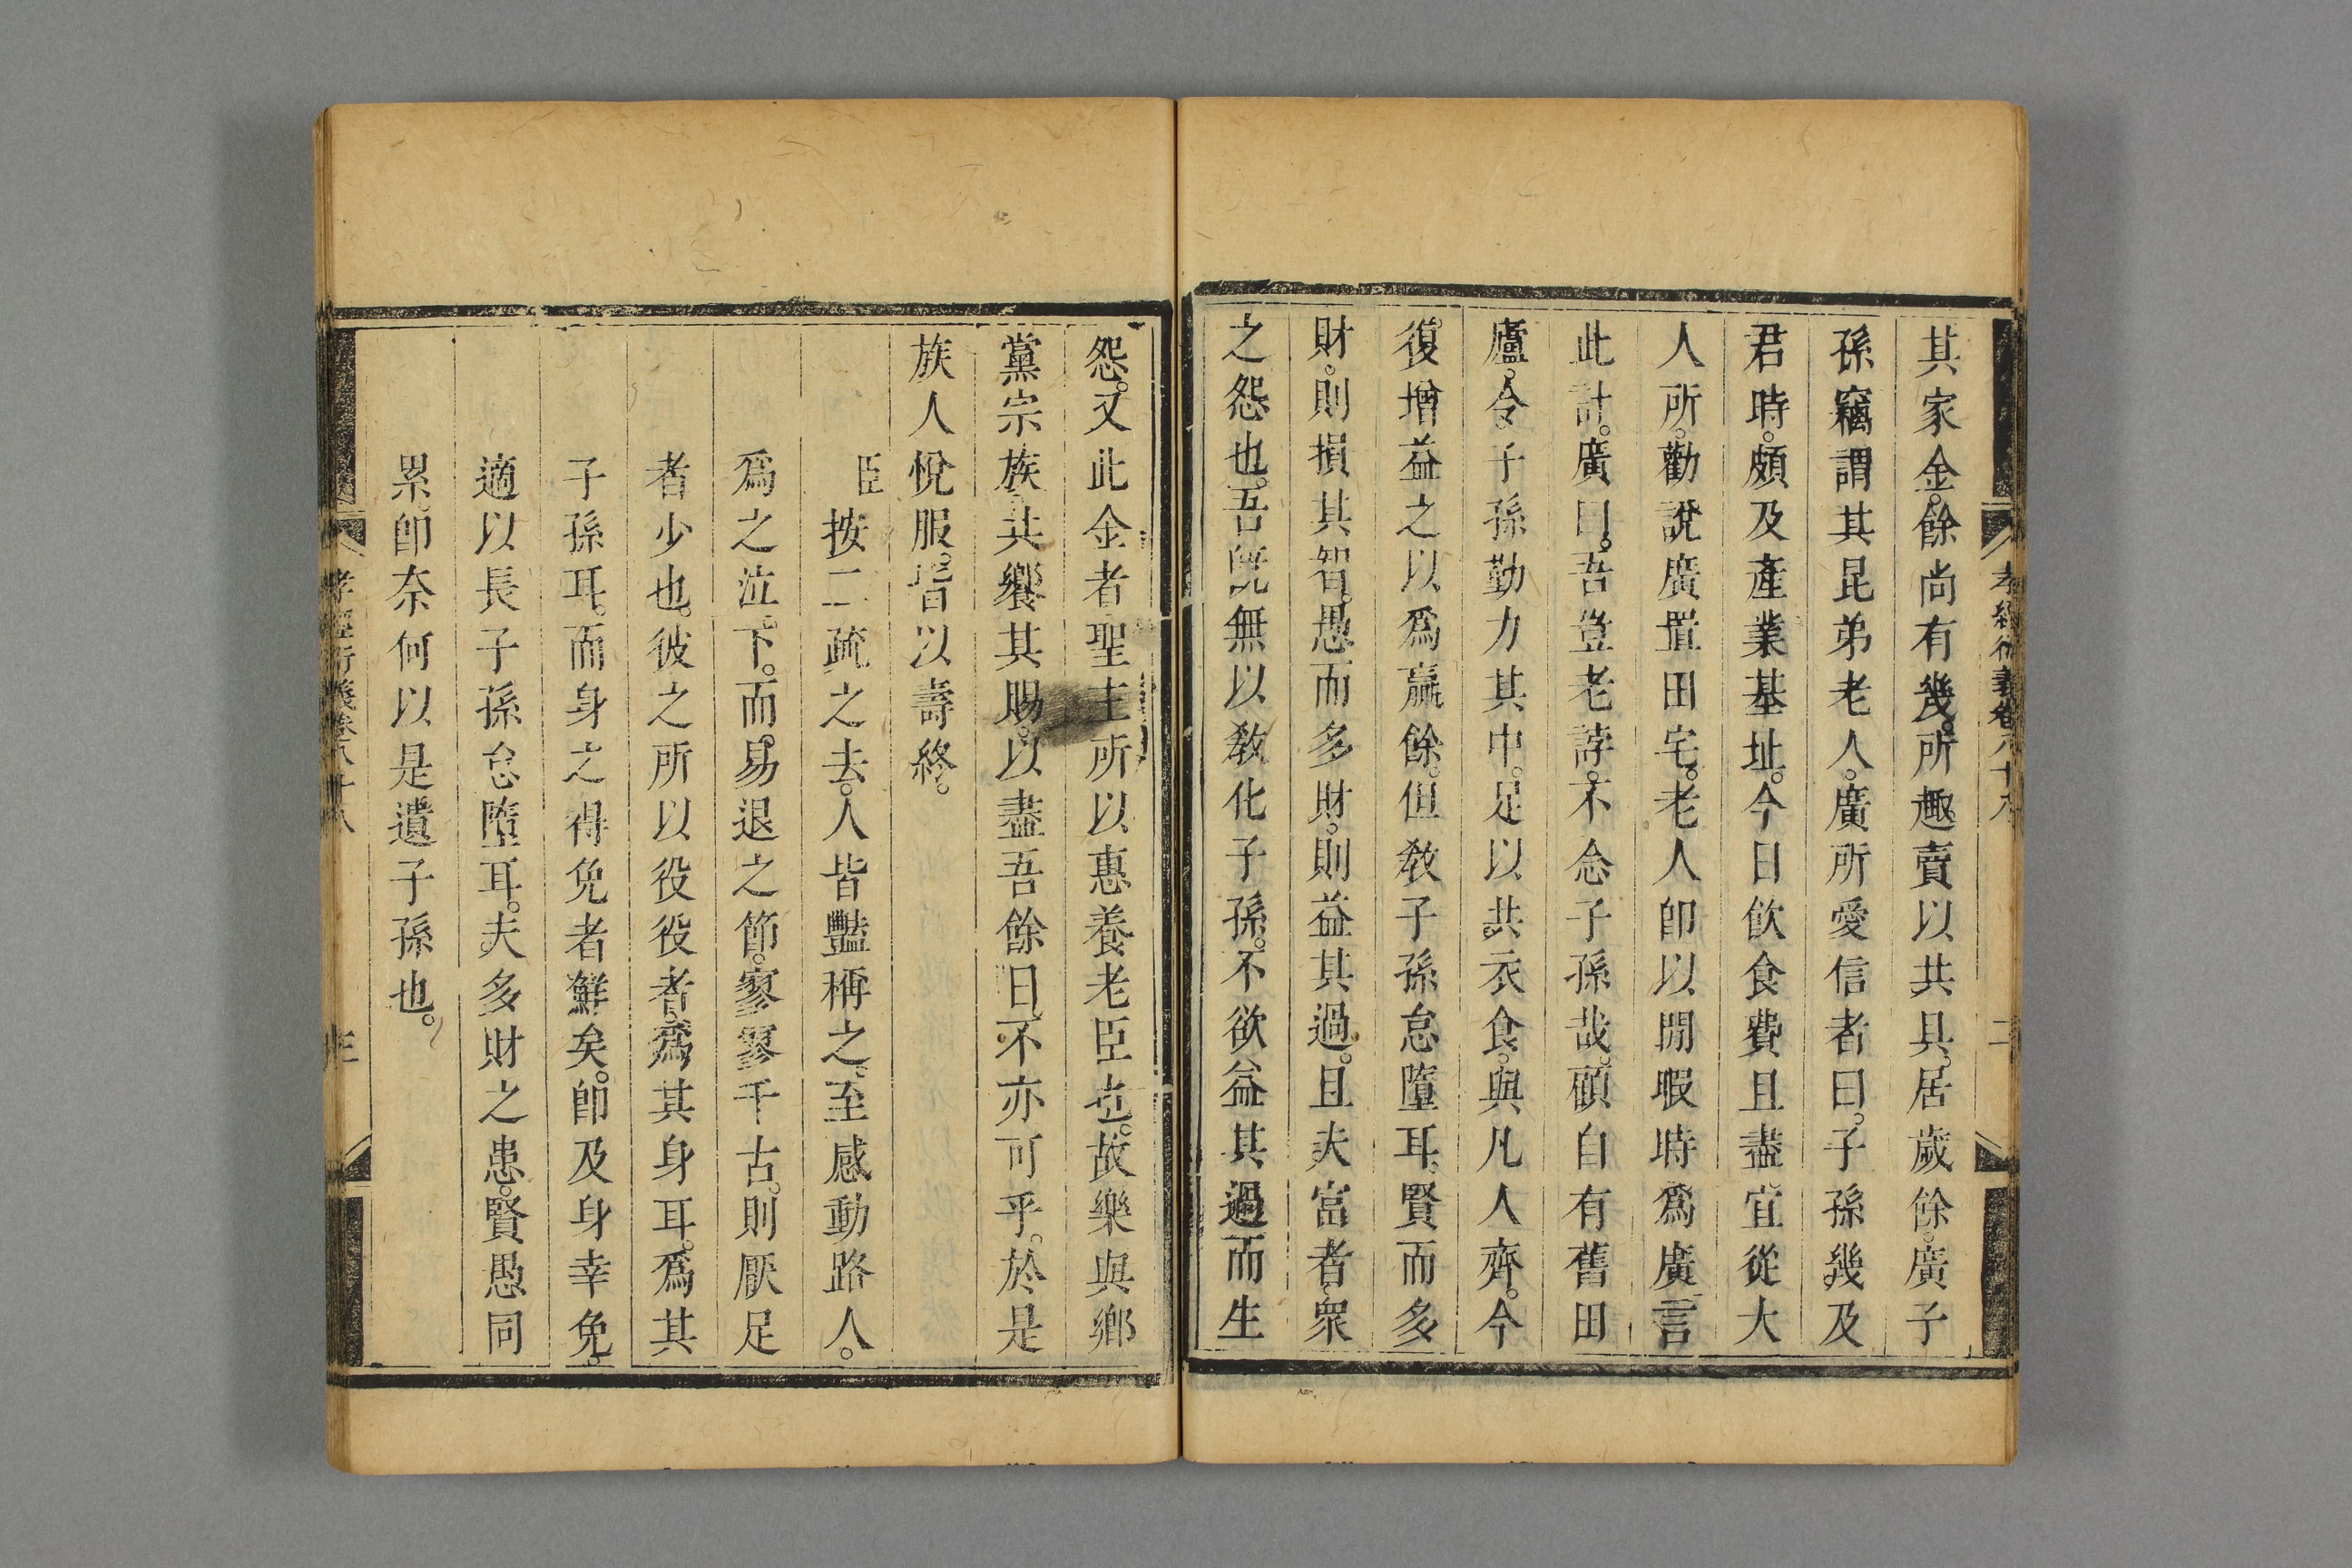 其家金。餘尚有幾。所趣賣以共具。居歲餘。廣子
孫竊謂其昆弟老人。廣所愛信者曰。子孫幾及
君時。頗及產業基址。今日飲食費且盡。宜從大
人所。勸說廣置田宅。老人卽以閒暇時爲廣言
此計。廣曰。吾豈老誖。不念子孫哉。顧自有舊田
廬。令子孫勤力其中。足以共衣食。與凡人齊。今
復增益之以爲贏餘。但敎子孫怠墮耳。賢而多
財。則損其智。愚而多財。則益其過。且夫富者。衆
之怨也。吾旣無以敎化子孫。不欲益其過而生
怨。又此金者聖主所以惠養老臣也。故樂與鄉
黨宗族。共饗其賜。以盡吾餘日。不亦可乎。於是
族人悅服。皆以壽終。
臣按二疏之去。人皆豔稱之。至感動路人。
爲之泣下。而易退之節。寥寥千古。則厭足
者少也。彼之所以役役者。爲其身耳。爲其
子孫耳。而身之得免者鮮矣。卽及身幸免。
適以長子孫怠墮耳。夫多財之患。賢愚同
累。卽奈何以是遺子孫也。
孝經衍義卷八十八